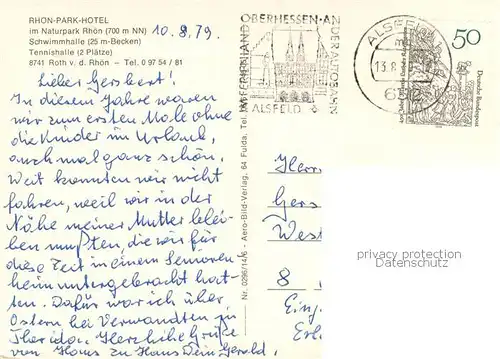 RHÖN-PARK-HOTEL
im Naturpark Rhön (700 m NN)
Schwimmhalle (25 m-Becken)
Tennishalle (2 Plätze)
8741 Roth v. d. Rhön – Tel. 0 97 54 / 81
10.8.79.
Lieber Gerbert!
In diesem Jahre waren
wir zum ersten Male ohne
die Kinder im Urlaub,
auch mal ganz schön.
Weit konnten wir nicht
fahren, weil wir in der
Nähe meiner Mutter blei-
ben mußten, die wir für
diese Zeit in einem Senioren-
heim untergebracht hat-
ten. Dafür war ich über
Ostern bei Verwandten in
Florida. Herzliche Grüße
von Haus zu Haus Dein Gerold.
Nr. 0296/14/6 - Aero-Bild-Verlag, 64 Fulda, Tel.
OBERHESSEN · AN
DER AUTOBAHN
ALSFELD
ALSFELD
13.8.
50
Deutsche Bundespost
Herrn
Gers
West
8
Eing.
Erl.
privacy protection
Datenschutz